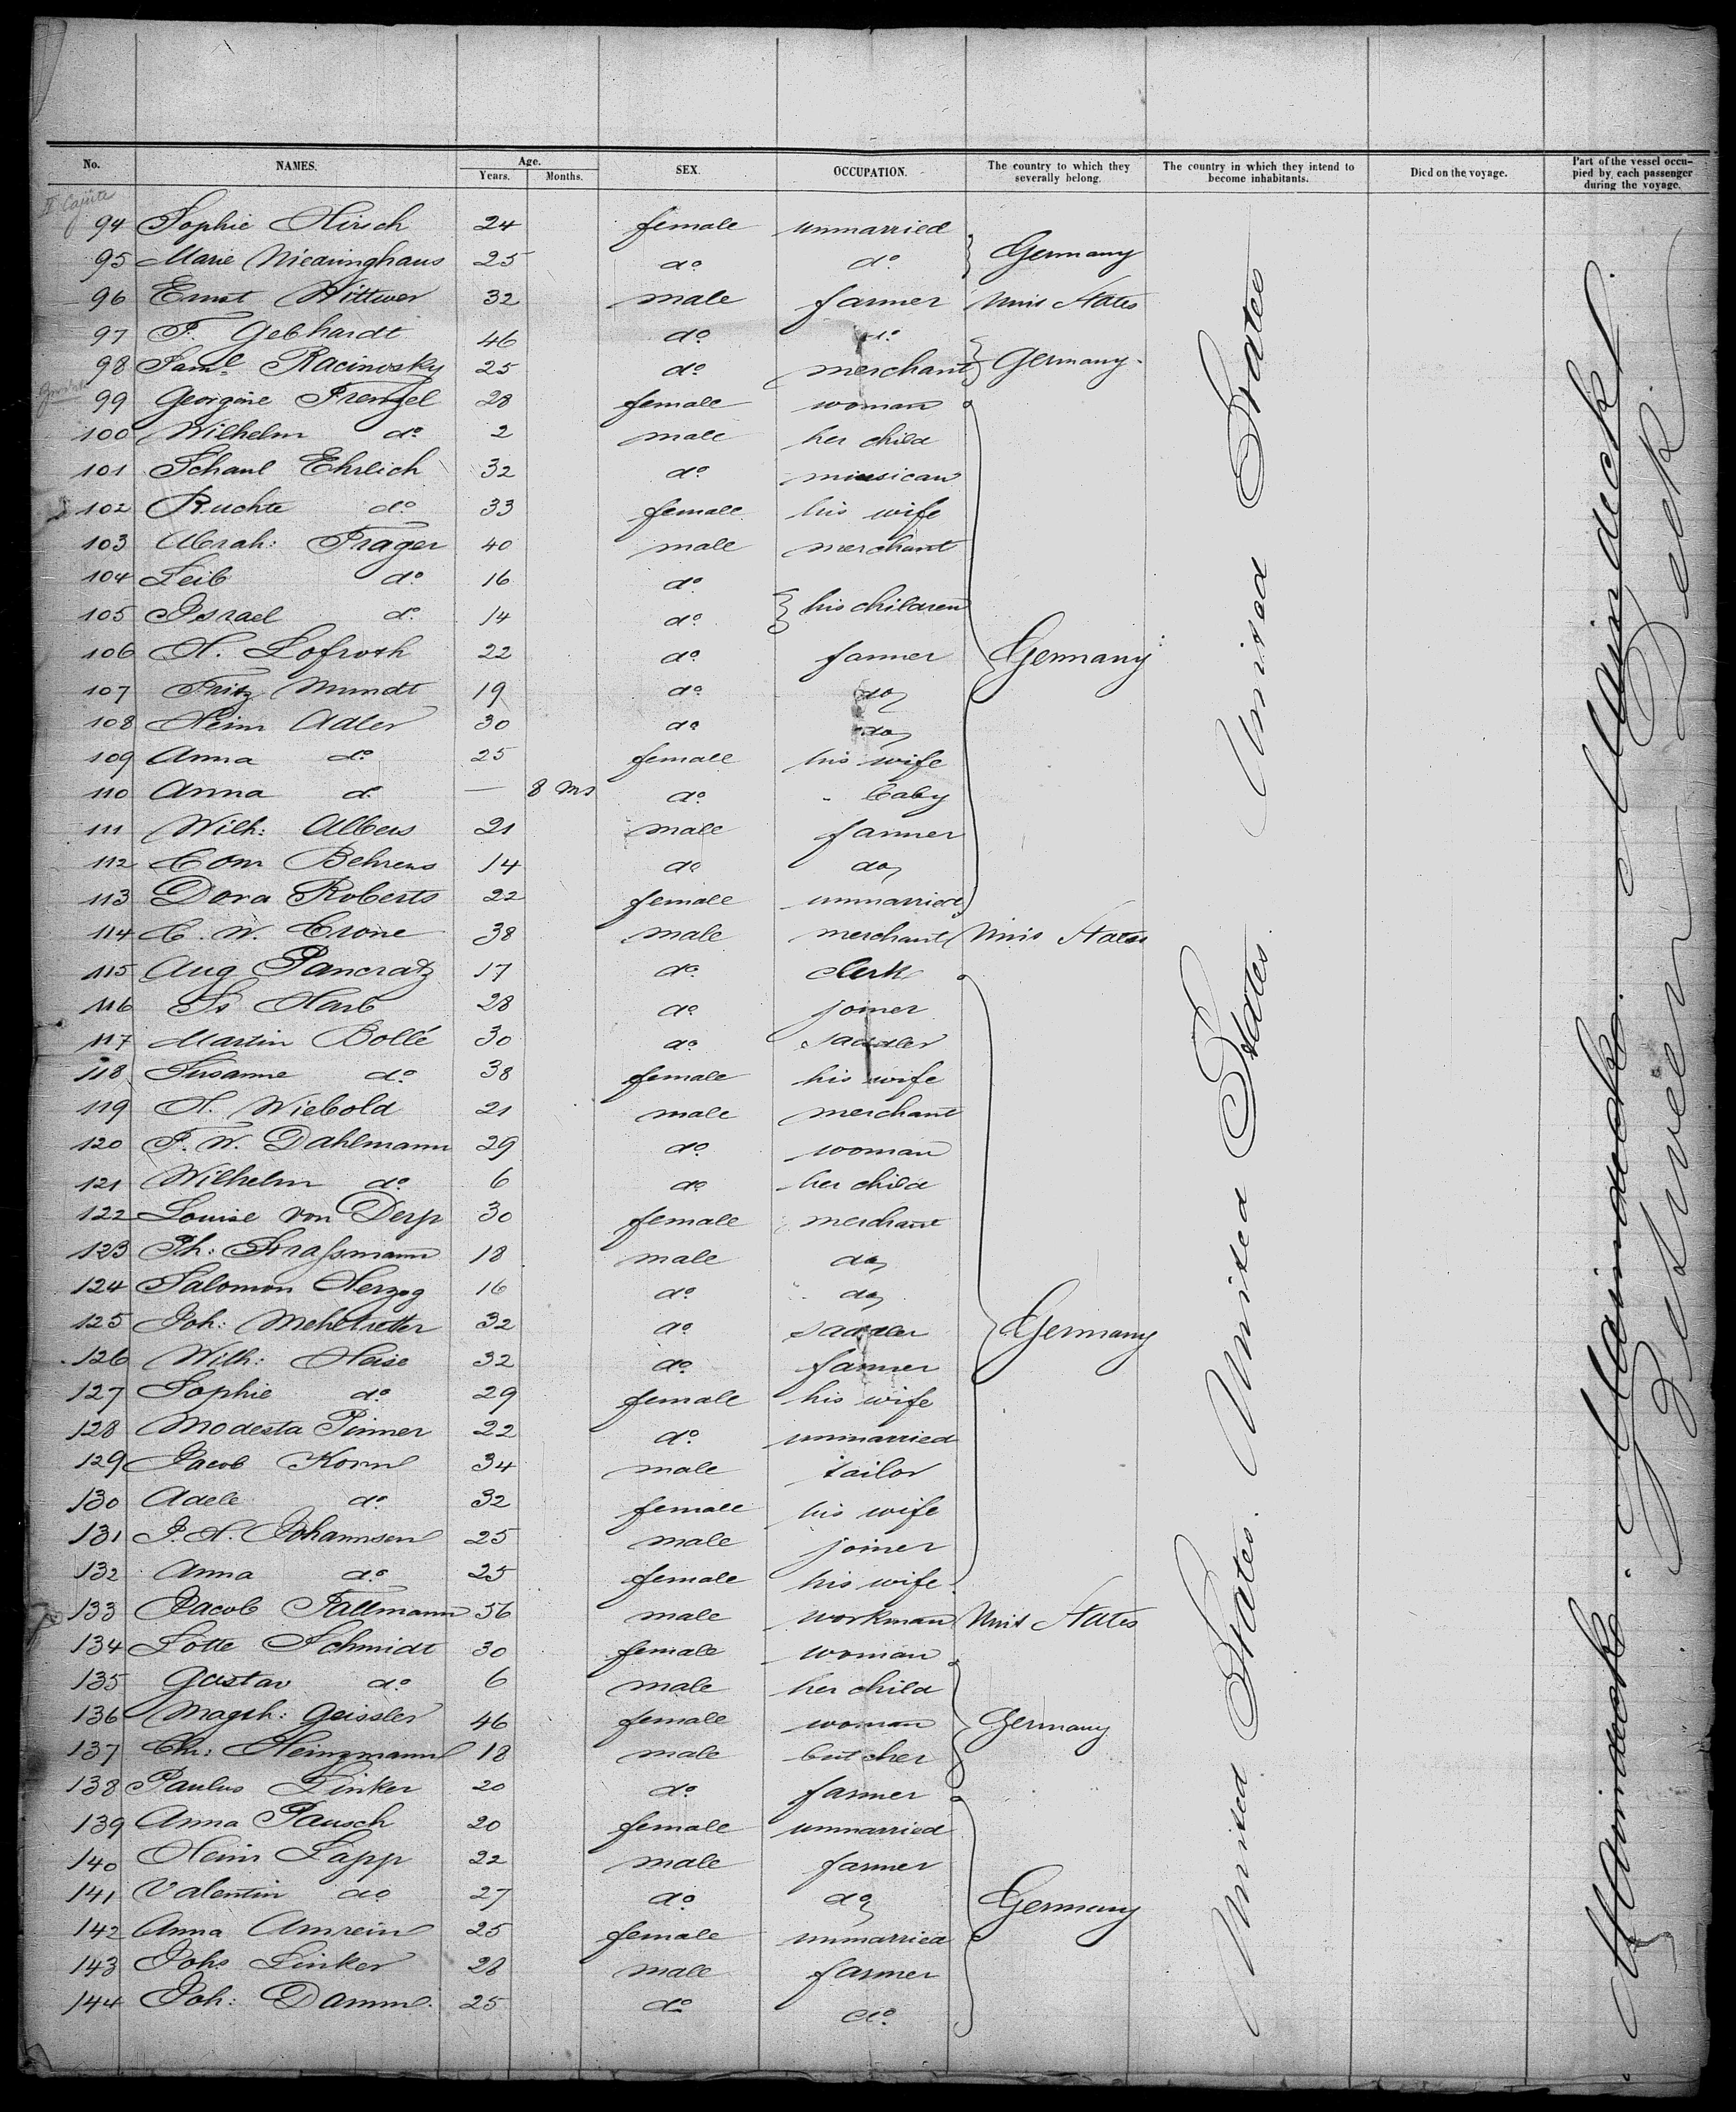 No. NAMES. Age. Years. Months. SEX. OCCUPATION. The country to which they severally belong. The country in which they intend to become inhabitants. Died on the voyage. Part of the vessel occupied by each passenger during the voyage.
II Cajüte
94 Sophie Hirsch 24 female unmarried
95 Marie Niedringhaus 25 do do Germany
96 Ernst Wittwer 32 male farmer Unit States
97 F. Gebhardt 46 do do
98 Saml Racinovsky 25 do merchant Germany
99 Georgine Frenzel 28 female woman
100 Wilhelm do 2 male her child
101 Schaul Ehrlich 32 do musican
102 Ruchte do 33 female his wife
103 Abrah: Prager 40 male merchant
104 Leib do 16 do
105 Israel do 14 do his children
106 H. Lofroth 22 do farmer Germany
107 Fritz Mundt 19 do do
108 Heinr Adler 30 do do
109 Anna do 25 female his wife
110 Anna do — 8 Ms do baby
111 Wilh: Albers 21 male farmer
112 Conr Behrens 14 do do
113 Dora Roberts 22 female unmarried
114 C. W. Crone 38 male merchant Unit States
115 Aug Pancratz 17 do clerk
116 Is Harb 28 do joiner
117 Martin Bollé 30 do saddler
118 Susanne do 38 female his wife
119 H. Wiebold 21 male merchant
120 F. W. Dahlmann 29 do woman
121 Wilhelm do 6 do her child
122 Louise von Derp 30 female merchant
123 Ph: Straßmann 18 male do
124 Salomon Herzog 16 do do
125 Joh: Mehltretter 32 do saddler Germany
126 Wilh: Heise 32 do farmer
127 Sophie do 29 female his wife
128 Modesta Pinner 22 do unmarried
129 Jacob Korn 34 male tailor
130 Adele do 32 female his wife
131 J. H. Johannsen 25 male joiner
132 Anna do 25 female his wife
133 Jacob Fallmann 56 male workman Unit States
134 Lotte Schmidt 30 female woman
135 Gustav do 6 male her child
136 Magth: Geissler 46 female woman Germany
137 Chr: Heinzmann 18 male butcher
138 Paulus Linker 20 do farmer
139 Anna Pausch 20 female unmarried
140 Heinr Lapp 22 male farmer
141 Valentin do 27 do do Germany
142 Anna Amrein 25 female unmarried
143 Johs Linker 28 male farmer
144 Joh: Damm 25 do do
United States. United States. United States
Maindeck. Maindeck. Maindeck.
Zwischen Deck